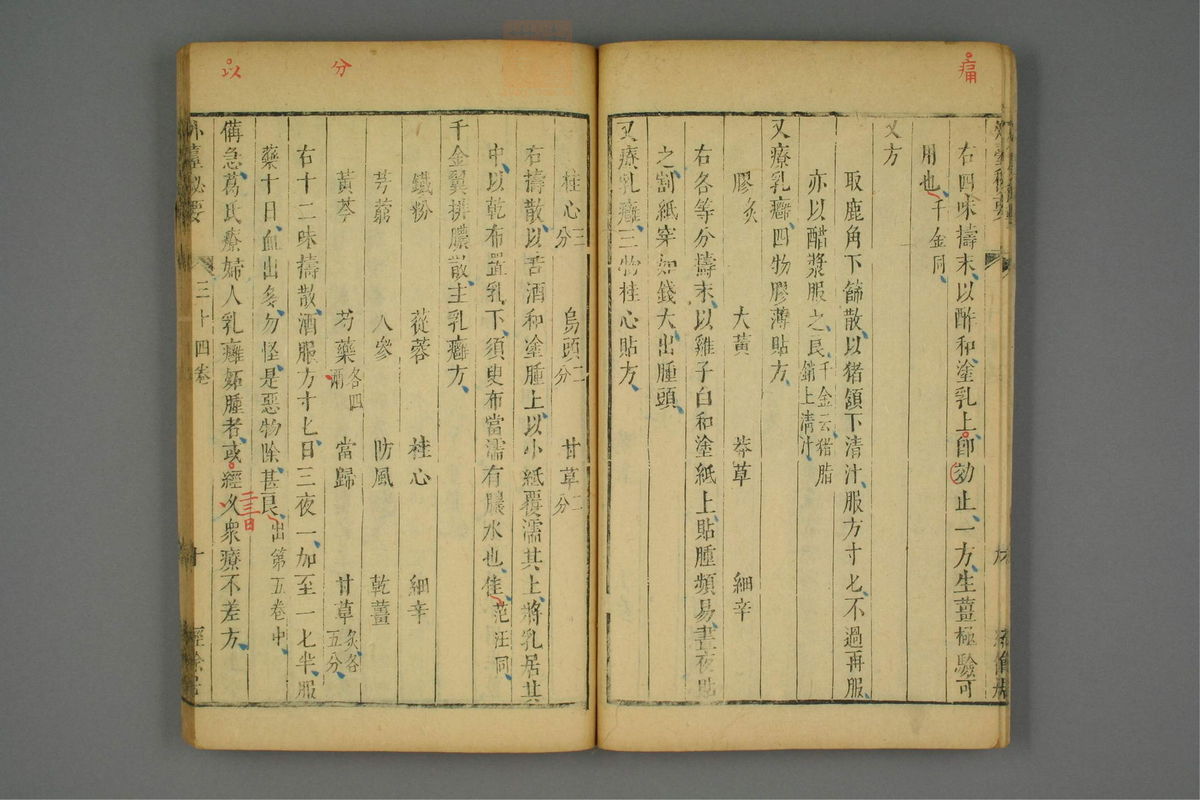 痛
右四味擣末以酢和塗乳上即効止一方生薑極驗可
用也千金同
又方
取鹿角下篩散以猪頷下清汁服方寸匕不過再服
亦以醋漿服之良千金云猪脂
銷上清汁
又療乳癰四物膠薄貼方
膠炙 大黃 莽草 細辛
右各等分擣末以雞子白和塗紙上貼腫頻易晝夜貼
之割紙穿如錢大出腫頭
又療乳癰三物桂心貼方
分
以
桂心三分 烏頭二分 甘草二分
右擣散以苦酒和塗腫上以小紙覆濡其上將乳居其
中以乾布置乳下須臾布當濡有膿水也佳范汪同
千金翼排膿散主乳癰方
鐵粉 蓯蓉 桂心 細辛
芎藭 人參 防風 乾薑
黃芩 芍藥各四兩 當歸 甘草炙各五分
右十二味擣散酒服方寸匕日三夜一加至一匕半服
藥十日血出多勿怪是惡物除甚良出第五卷中
二三日
備急葛氏療婦人乳癰妬腫者或經久衆療不差方
外臺秘要 三十四卷 十 經餘居